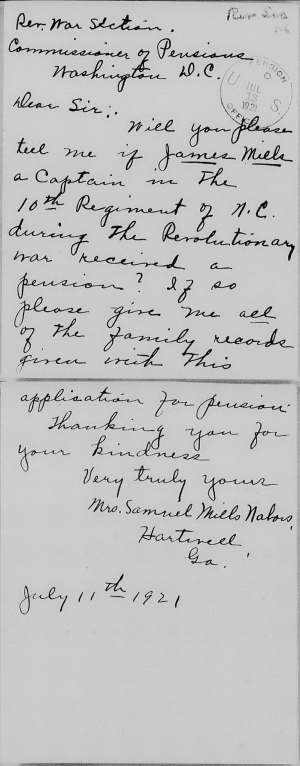 Rev. War Section.
Commissioner of Pensions
Washington D.C.
PENSION
OFFICE
U S
JUL
1921
Dear Sir:.
Will you please
tell me if James Mills
a Captain in the
10th Regiment of N.C.
during the Revolutionary
war received a
pension? If so
please give me all
of the family records
given with this
application for pension.
Thanking you for
your kindness
Very truly yours
Mrs. Samuel Mills Nabors,
Hartwell
Ga.
July 11th 1921